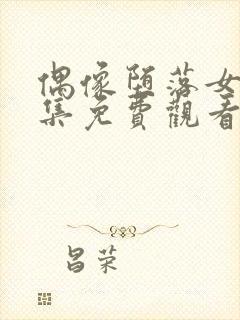 偶像堕落女
集免費觀看
昌荣